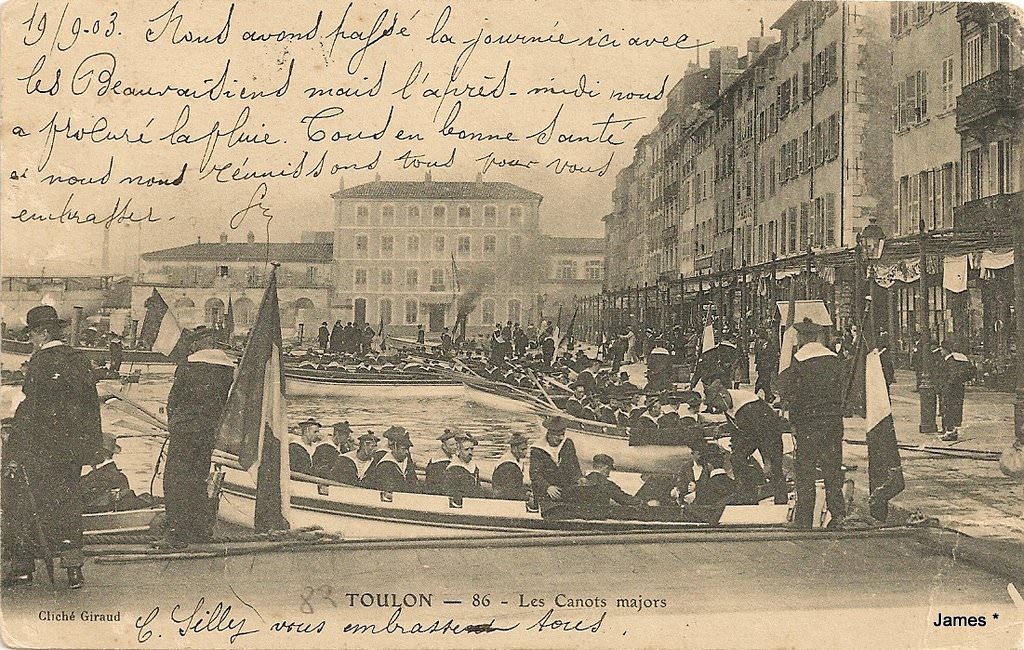 19/9-03. Nous avons passé la journée ici avec
les Beauvaisiens mais l'après-midi nous
a procuré la pluie. Tous en bonne santé
et nous nous réunissons tous pour vous
embrasser.
TOULON — 86 - Les Canots majors
Cliché Giraud
C. Silly vous embrassent tous.
James *